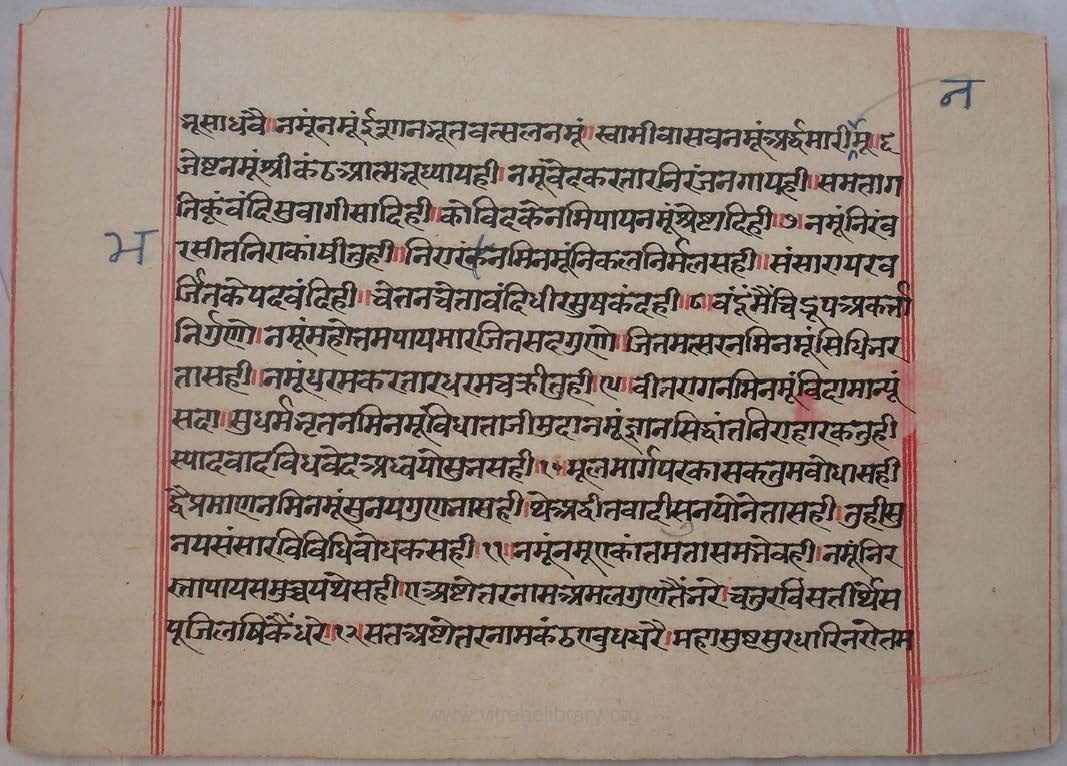 न
भूसाधवै ॥ नमूंनमूंईशानभूतवत्सलनमूं ॥ स्वामीवासवनमूंअर्द्धमारीमू ॥ ६
जेष्टनमूंश्रीकंठआत्मभूध्यायही ॥ नमूंवेदकरतारनिरंजनगायही ॥ समताग
तिकूंवंदिसुवागीसादिही ॥ कोविदकेनमिपायनमूंश्रेष्टादिही ॥ ७ ॥ नमूंनिरंव
भ
रसीतनिराकांषीतुही ॥ नमिनमूंनिकलनिर्मलसही ॥ संसारायरव
र्जितकेपदवंदिही ॥ चेतनचेतावंदिधीरसुषकंदही ॥ ८ ॥ वंदूंमैंचिद्रूपअकर्त्ता
निर्गुणो ॥ नमूंमहोत्तमपायमारजितसदगुणो ॥ जितमत्सरनमिनमूंसिधिनर
तासही ॥ नमूंपरमकरतारपरमचक्रीतुही ॥ ९ ॥ वीतरागनमिनमूंविदामान्पूं
सदा ॥ सुधर्मभृतनमिनमूंविधाताजीमुदानमूंज्ञानसिद्धांतनिराहारकतुही
स्यादवादविधवेदअध्वयोसुनसही ॥ १० ॥ मूलमार्गपरकासकतुमवोधासही
द्वैप्रमाणनमिनमूंसुनयगुणतासही ॥ थेअदीतवादीसुनयोनेतासही ॥ तुहीसु
नयसंसारविविधिवोधकसही ॥ ११ ॥ नमूंनमूएकांतमतासमत्तेवही ॥ नमूंनिर
स्तापायसमुच्चयथेसही ॥ एअष्टोत्तरनामअमलगुणतैंनरे ॥ चतुरविसतीर्थेस
पूजिलषिकैंधरे ॥ १२ ॥ सतअष्टोतरनामकंठएवुधधरै ॥ महासुष्टसुरधारिनरोतम
www.vitragelibrary.org